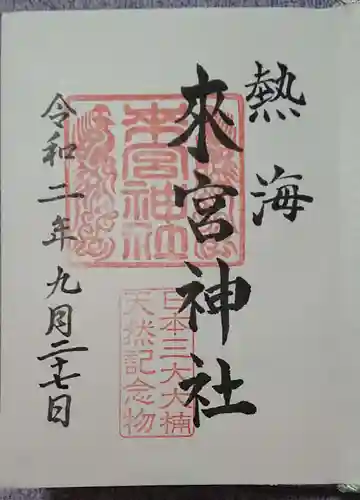 熱海
來宮神社
令和二年九月二十七日
來宮神社
日本三大大楠
天然記念物